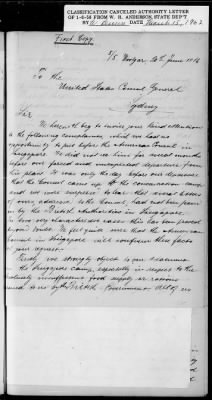 CLASSIFICATION CANCELED AUTHORITY
LETTER OF 1-8-58 FROM W. H. ANDERSON, STATE DEP'T
BY DATE March 15, 1962
First Copy.
S/S Morgan, 20th June 1916
To the
United States Consul General
Sydney
Sir
We herewith beg to invite your kind attention
to the following complaints, which we had no
opportunity to put before the American Consul in
Singapore. We did not see him for several months
before our forced and unexpected departure from
this place. It was only the day before our departure
that the Consul came up to the concentration camp
and we were surprised to hear that several letters
of ours, addressed to the Consul, had not been given
in by the British Authorities in Singapore.
In two very characteristic cases this has been proved
beyond doubt. We feel quite sure that the American
Consul in Singapore will confirm these facts
at your request.
Firstly we strongly object to your
the Singapore camp, especially in respect to the
absolutely insufficient food supply or rations
issued to us by the British Government. All of us